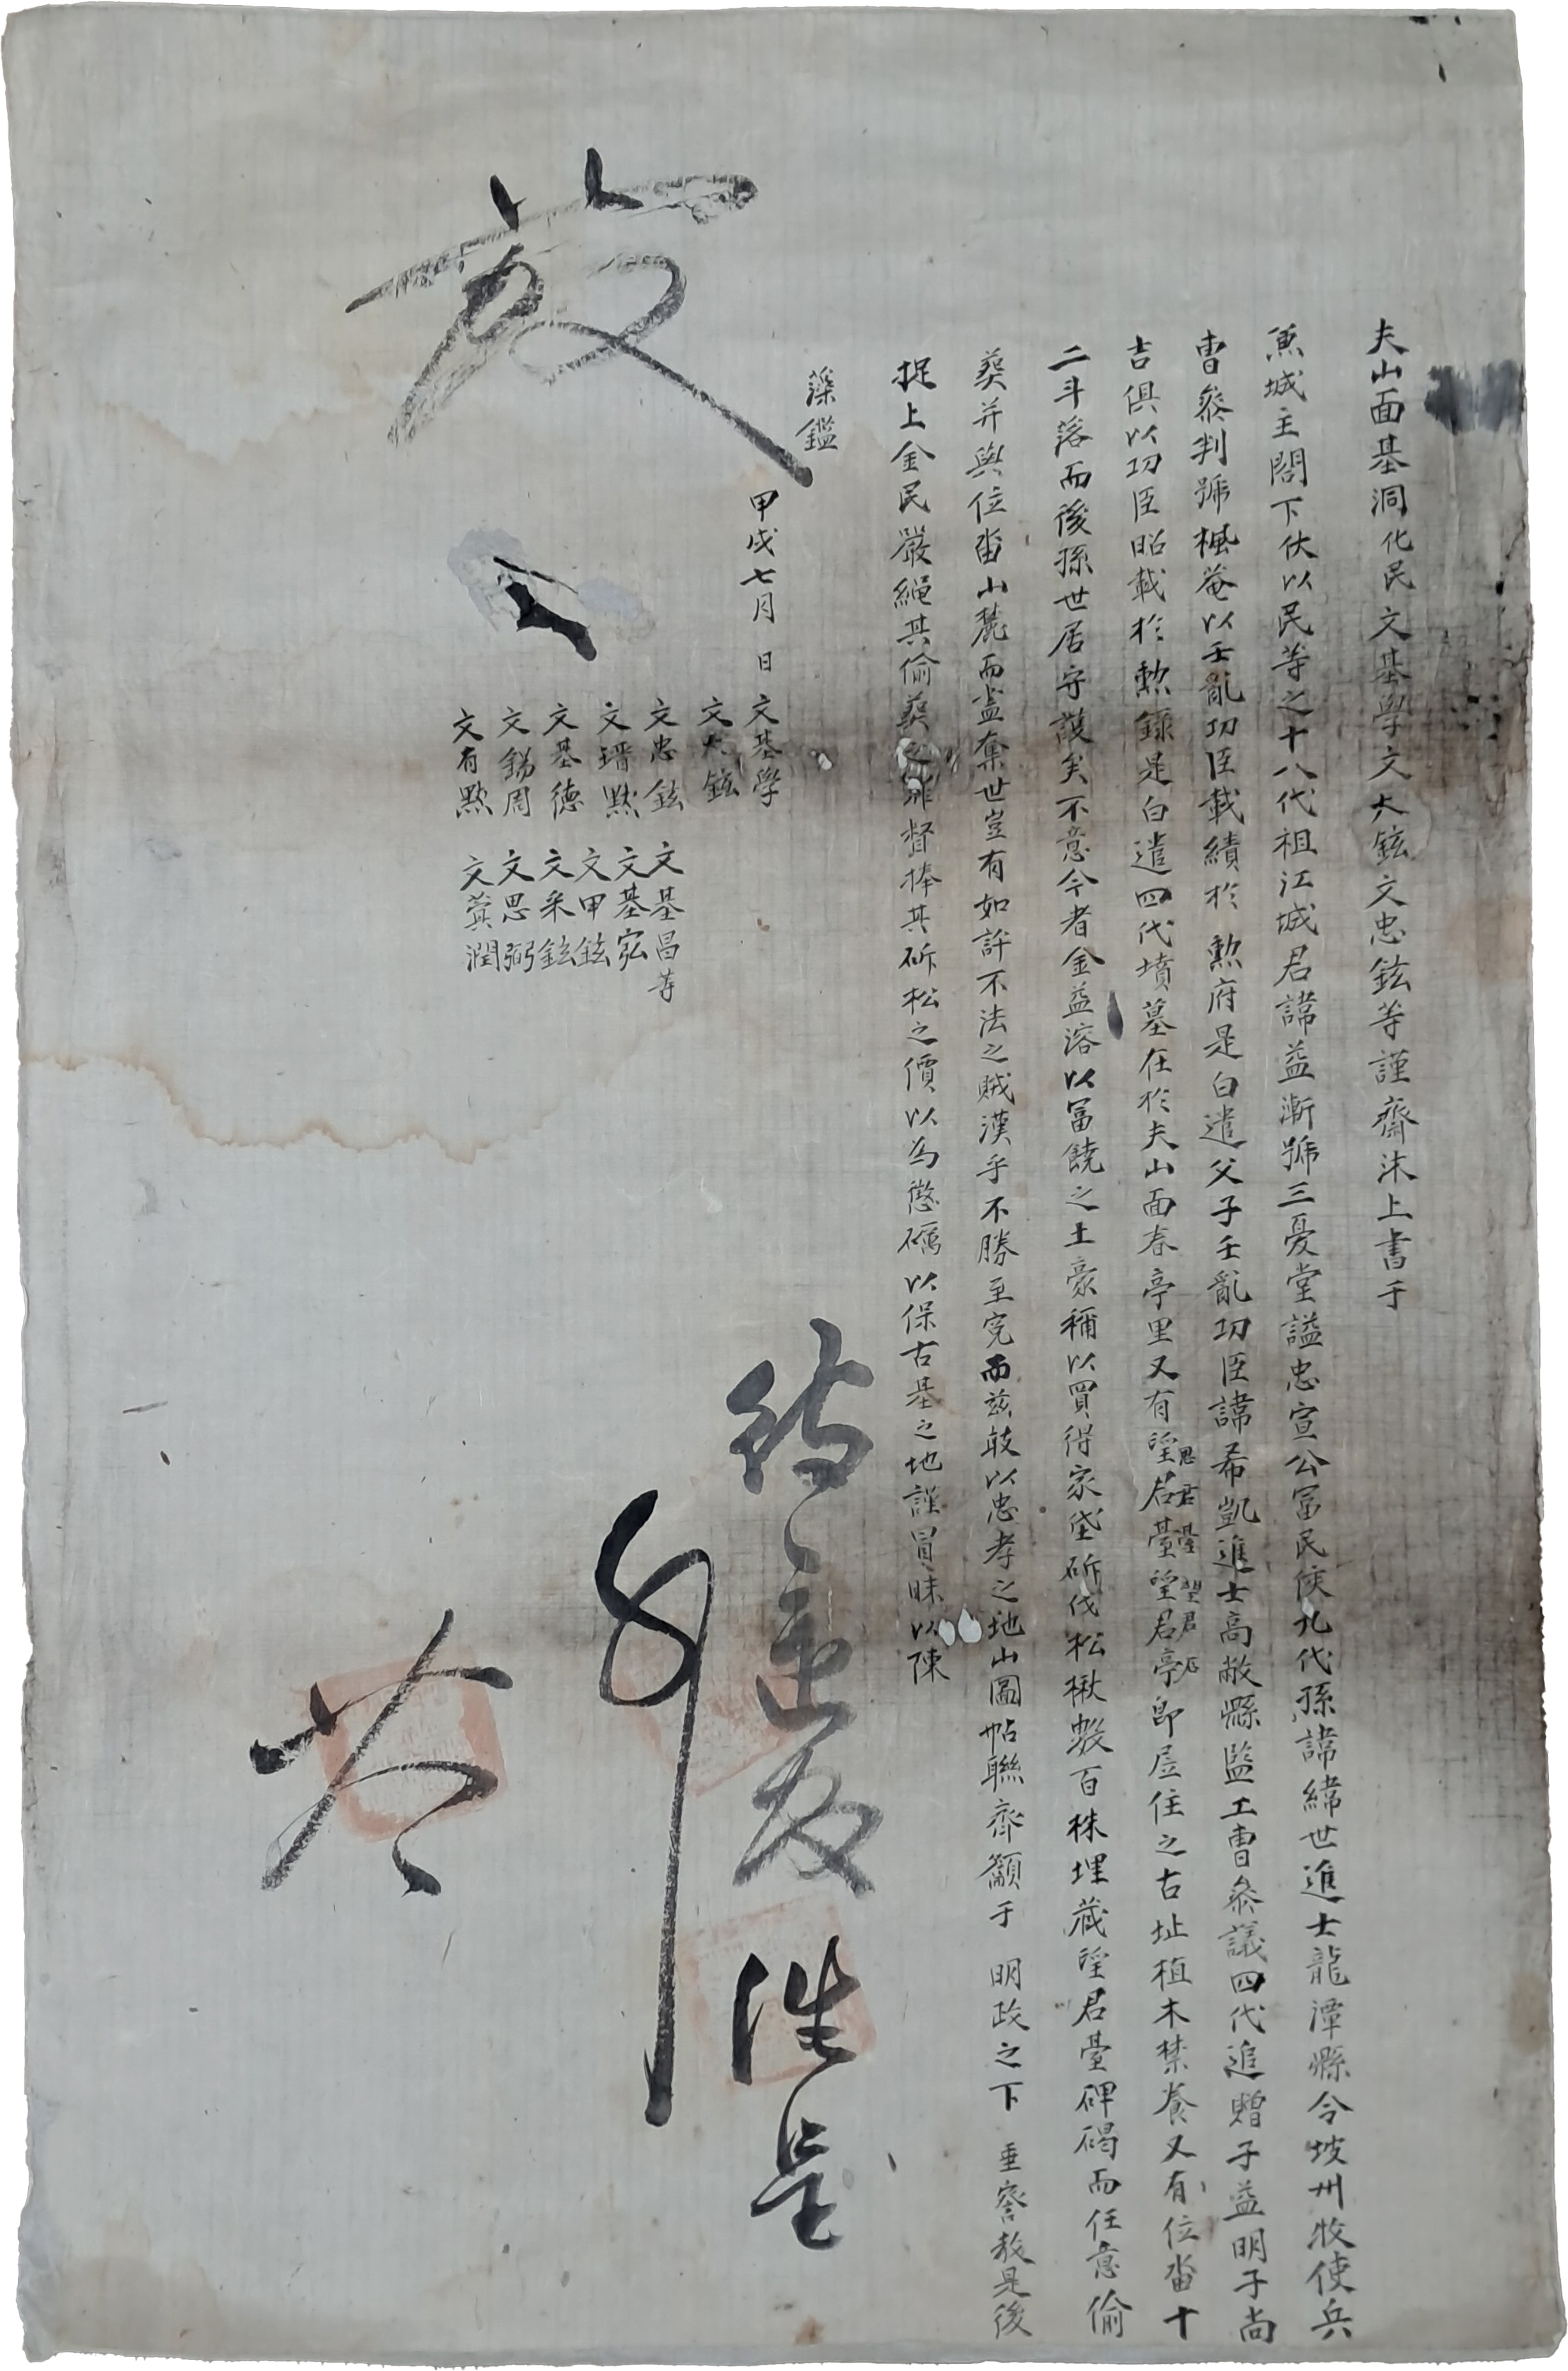 夫山面基洞化民文基學文大鉉文忠鉉等謹齋沐上書于
城主閤下伏以民等之十八代祖江城君諱益漸號三憂堂謚忠宣公富民侯九代孫諱緯世進士龍潭縣令坡州牧使兵
曹參判號楓菴以壬亂功臣載績於 勲府是白遣父子壬亂功臣諱希凱進士高敞縣監工曹參議四代追贈子益明子尚
吉俱以功臣昭載於勲錄是白遣四代墳墓在於夫山面春亭里又有望君臺望君亭卽居住之古址植木禁養又有位畓十
思君臺望君石
二斗落而後孫世居守護矣不意今者金益溶以富饒之土豪稱以買得家垈斫伐松楸數百株埋藏望君臺碑碣而任意偷
葬并與位畓山麓而盡奪世豈有如許不法之賊漢乎不勝至冤而玆敢以忠孝之地山圖帖聯齊籲于 明政之下 垂察敎是後
捉上金民嚴繩其偷葬之罪督捧其斫松之價以爲懲礪以保古基之地謹冒昧以陳
藻鑑
甲戌七月 日
文基學
文大鉉
文忠鉉 文基昌等
文瑨黙 文基宖
文基德 文甲鉉
文錫周 文采鉉
文有黙 文思弼
文蓂潤